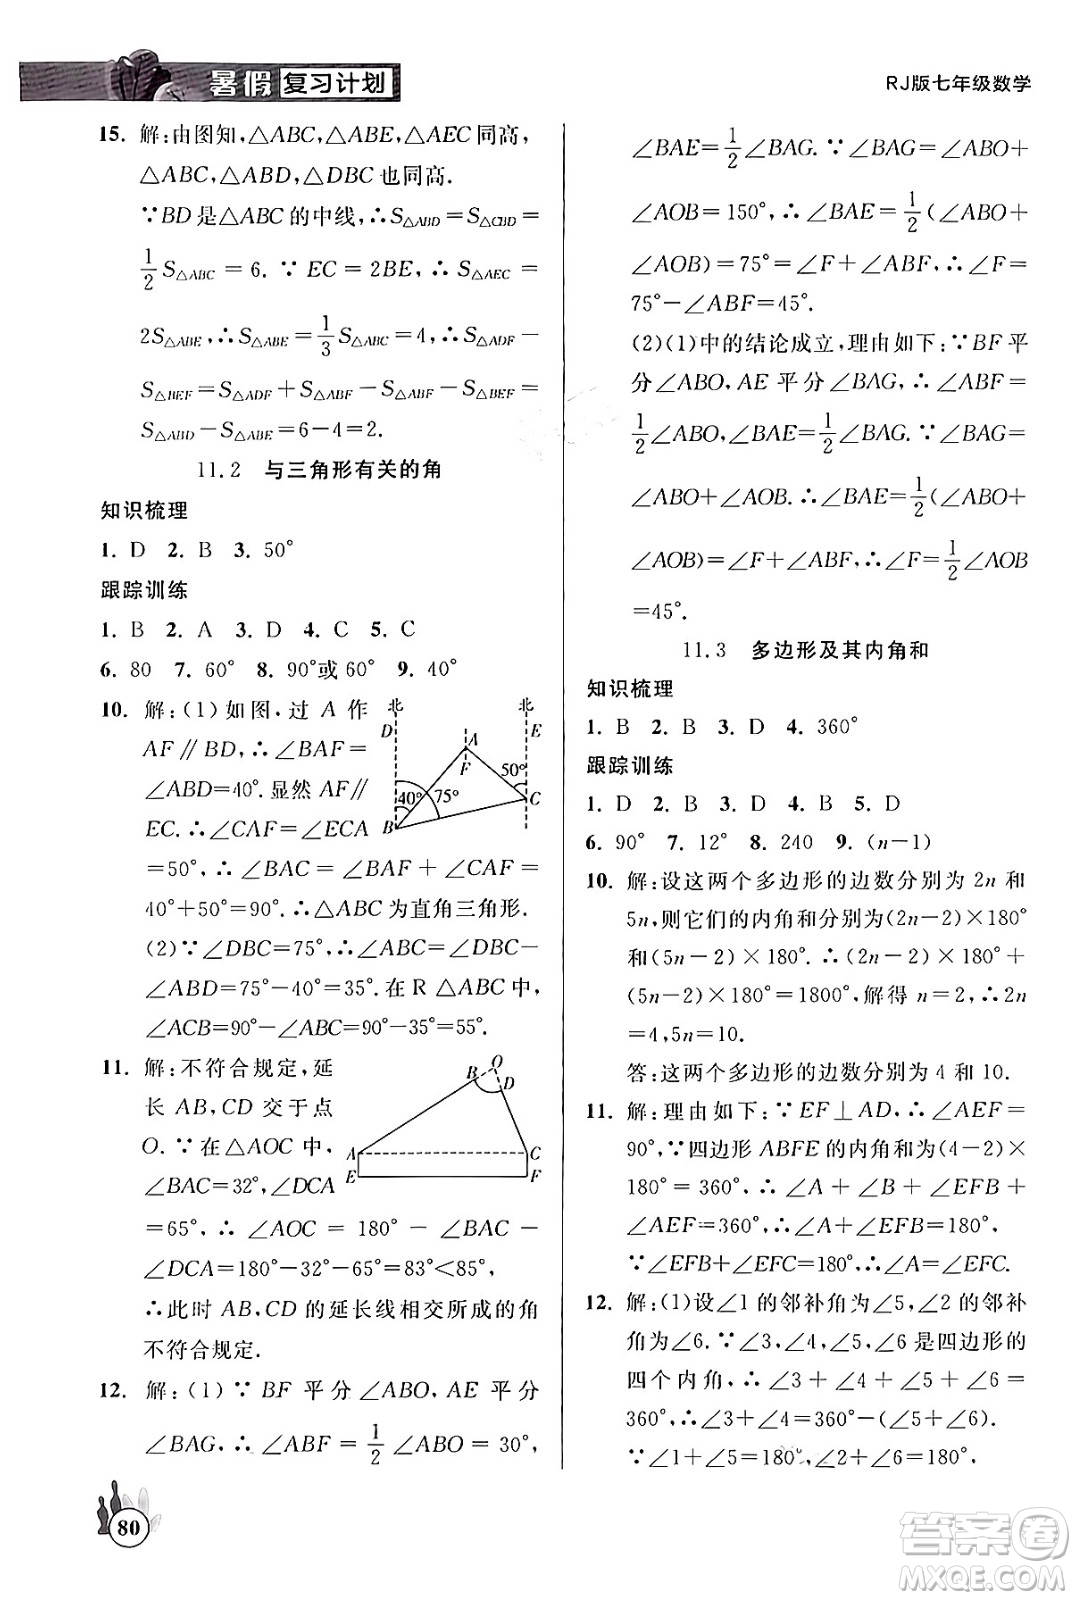 暑假 复习计划
RJ版七年级数学
15. 解:由图知,△ABC,△ABE,△AEC同高,
△ABC,△ABD,△DBC也同高.
∵BD是△ABC的中线,∴S△ABD=S△CBD=
1/2 S△ABC=6.∵EC=2BE,∴S△AEC=
2S△ABE,∴S△ABE=1/3 S△ABC=4,∴S△ADF-
S△BEF=S△ADF+S△ABF-S△ABF-S△BEF=
S△ABD-S△ABE=6-4=2.
11.2 与三角形有关的角
知识梳理
1. D 2. B 3. 50°
跟踪训练
1. B 2. A 3. D 4. C 5. C
6. 80 7. 60° 8. 90°或60° 9. 40°
10. 解:(1)如图,过A作
AF∥BD,∴∠BAF=
∠ABD=40°.显然AF∥
EC.∴∠CAF=∠ECA
=50°,∴∠BAC=∠BAF+∠CAF=
40°+50°=90°.∴△ABC为直角三角形.
(2)∵∠DBC=75°,∴∠ABC=∠DBC-
∠ABD=75°-40°=35°.在R△ABC中,
∠ACB=90°-∠ABC=90°-35°=55°.
北 北
D E
A
F
50°
40° 75°
B C
11. 解:不符合规定,延
长AB,CD交于点
O.∵在△AOC中,
∠BAC=32°,∠DCA
=65°,∴∠AOC=180°-∠BAC-
∠DCA=180°-32°-65°=83°<85°,
∴此时AB,CD的延长线相交所成的角
不符合规定.
O
B D
A C
E F
12. 解:(1)∵BF平分∠ABO,AE平分
∠BAG,∴∠ABF=1/2∠ABO=30°,
∠BAE=1/2∠BAG.∵∠BAG=∠ABO+
∠AOB=150°,∴∠BAE=1/2(∠ABO+
∠AOB)=75°=∠F+∠ABF,∴∠F=
75°-∠ABF=45°.
(2)(1)中的结论成立,理由如下:∵BF平
分∠ABO,AE平分∠BAG,∴∠ABF=
1/2∠ABO,∠BAE=1/2∠BAG.∵∠BAG=
∠ABO+∠AOB.∴∠BAE=1/2(∠ABO+
∠AOB)=∠F+∠ABF,∴∠F=1/2∠AOB
=45°.
11.3 多边形及其内角和
知识梳理
1. B 2. B 3. D 4. 360°
跟踪训练
1. D 2. B 3. B 4. B 5. D
6. 90° 7. 12° 8. 240 9. (n-1)
10. 解:设这两个多边形的边数分别为2n和
5n,则它们的内角和分别为(2n-2)×180°
和(5n-2)×180°.∴(2n-2)×180°+
(5n-2)×180°=1800°,解得n=2,∴2n
=4,5n=10.
答:这两个多边形的边数分别为4和10.
11. 解:理由如下:∵EF⊥AD,∴∠AEF=
90°,∵四边形ABFE的内角和为(4-2)×
180°=360°,∴∠A+∠B+∠EFB+
∠AEF=360°,∴∠A+∠EFB=180°,
∵∠EFB+∠EFC=180°,∴∠A=∠EFC.
12. 解:(1)设∠1的邻补角为∠5,∠2的邻补
角为∠6.∵∠3,∠4,∠5,∠6是四边形的
四个内角,∴∠3+∠4+∠5+∠6=
360°,∴∠3+∠4=360°-(∠5+∠6).
∵∠1+∠5=180°,∠2+∠6=180°,
80
答案圈
MXQE.COM